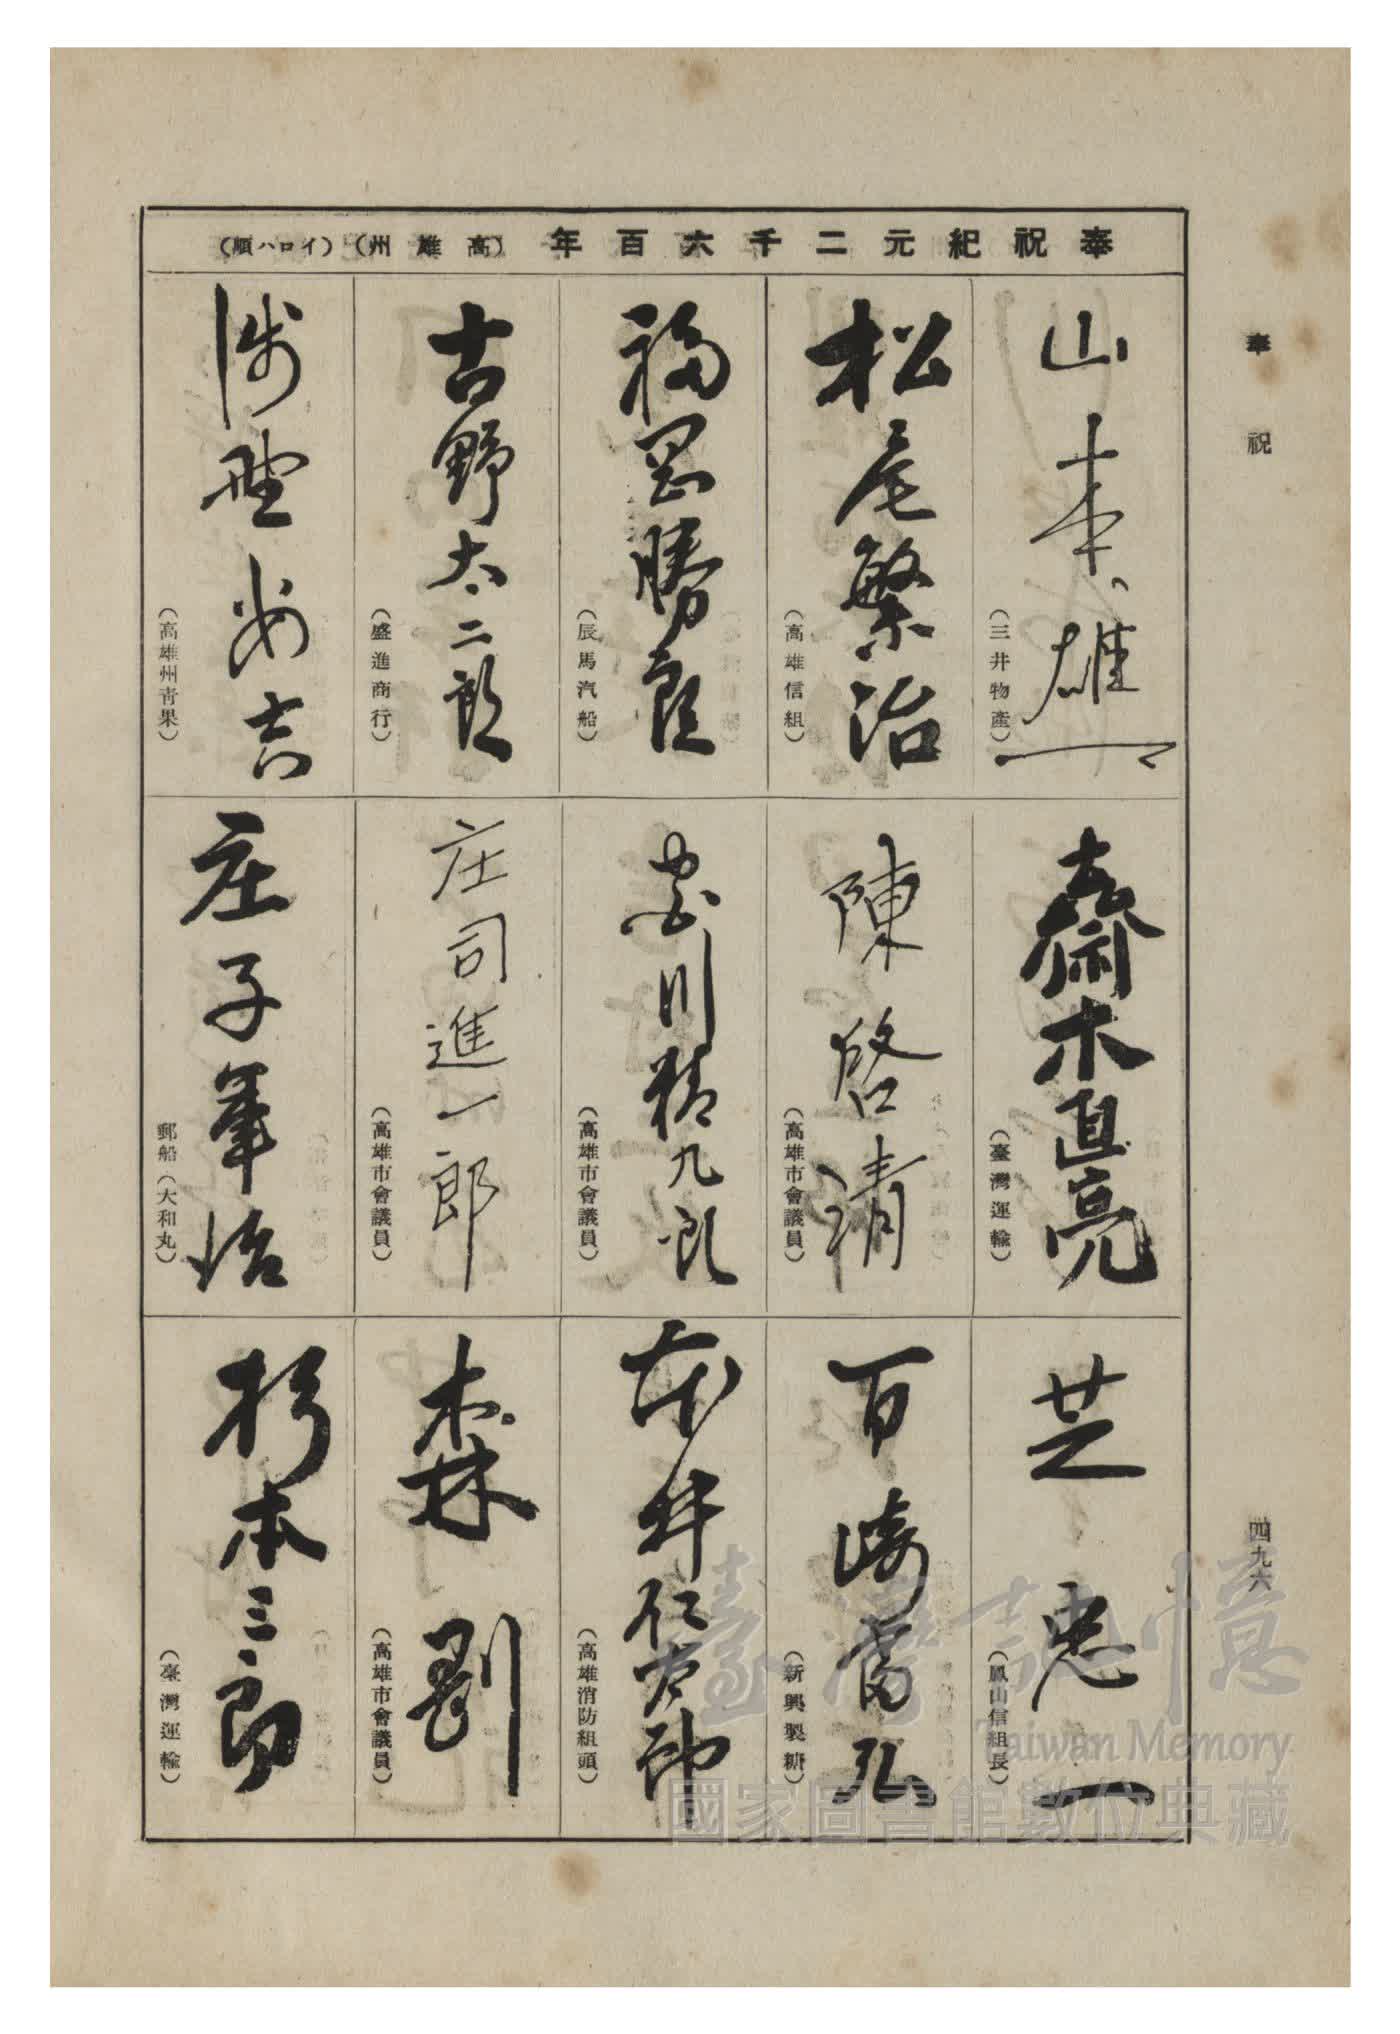 奉祝
四九六
奉祝紀元二千六百年（高雄州）（イロハ順）
山本雄一
（三井物產）
松尾繁治
（高雄信組）
福岡勝良
（辰馬汽船）
古野太二郎
（盛進商行）
吉
（高雄州青果）
齋木直亮
（臺灣運輸）
陳啓清
（高雄市會議員）
川精九郎
（高雄市會議員）
庄司進一郎
（高雄市會議員）
庄子軍治
郵船（大和丸）
芝忠一
（鳳山信組長）
百崎富弘
（新興製糖）
本井仁
（高雄消防組頭）
森劉
（高雄市會議員）
杉本三郎
（臺灣運輸）
臺灣記憶
Taiwan Memory
國家圖書館數位典藏